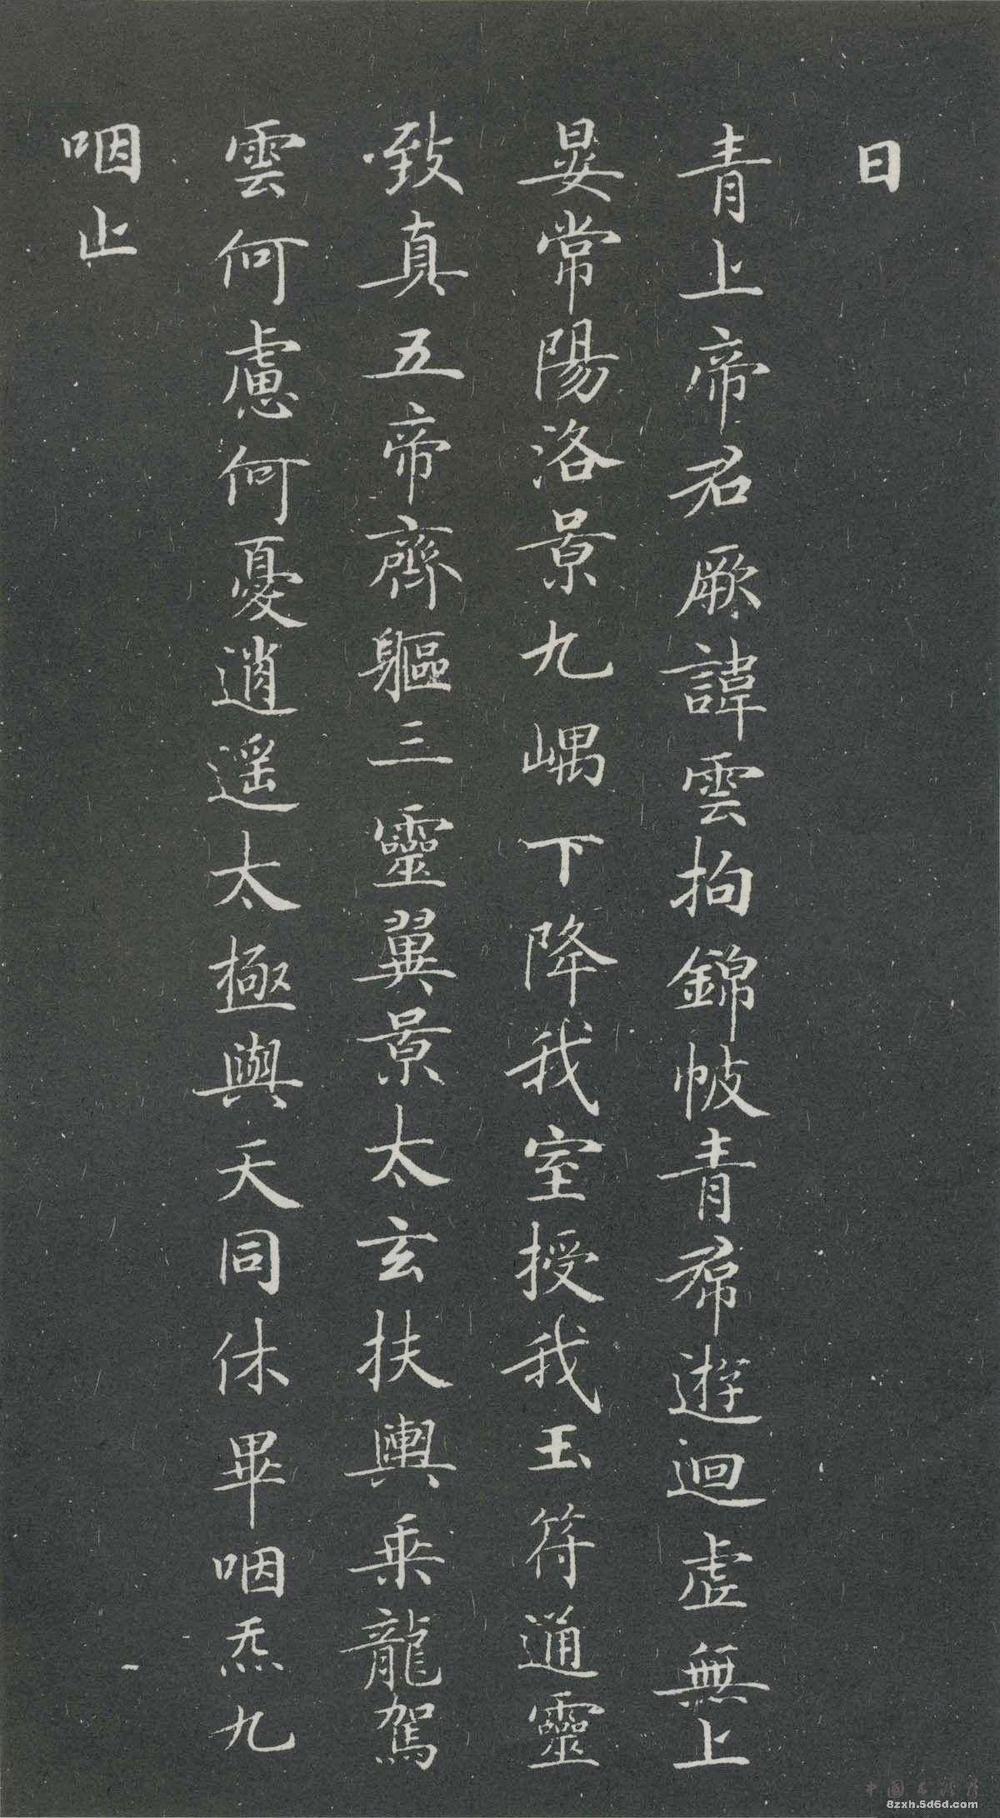 曰
青上帝君厥諱雲拘錦帔青帬遊迴虛無上
晏常陽洛景九嵎下降我室授我玉符通靈
致真五帝齊軀三靈翼景太玄扶輿乘龍駕
雲何慮何憂逍遥太極與天同休畢咽炁九
咽止
8zxh.5d6d.com